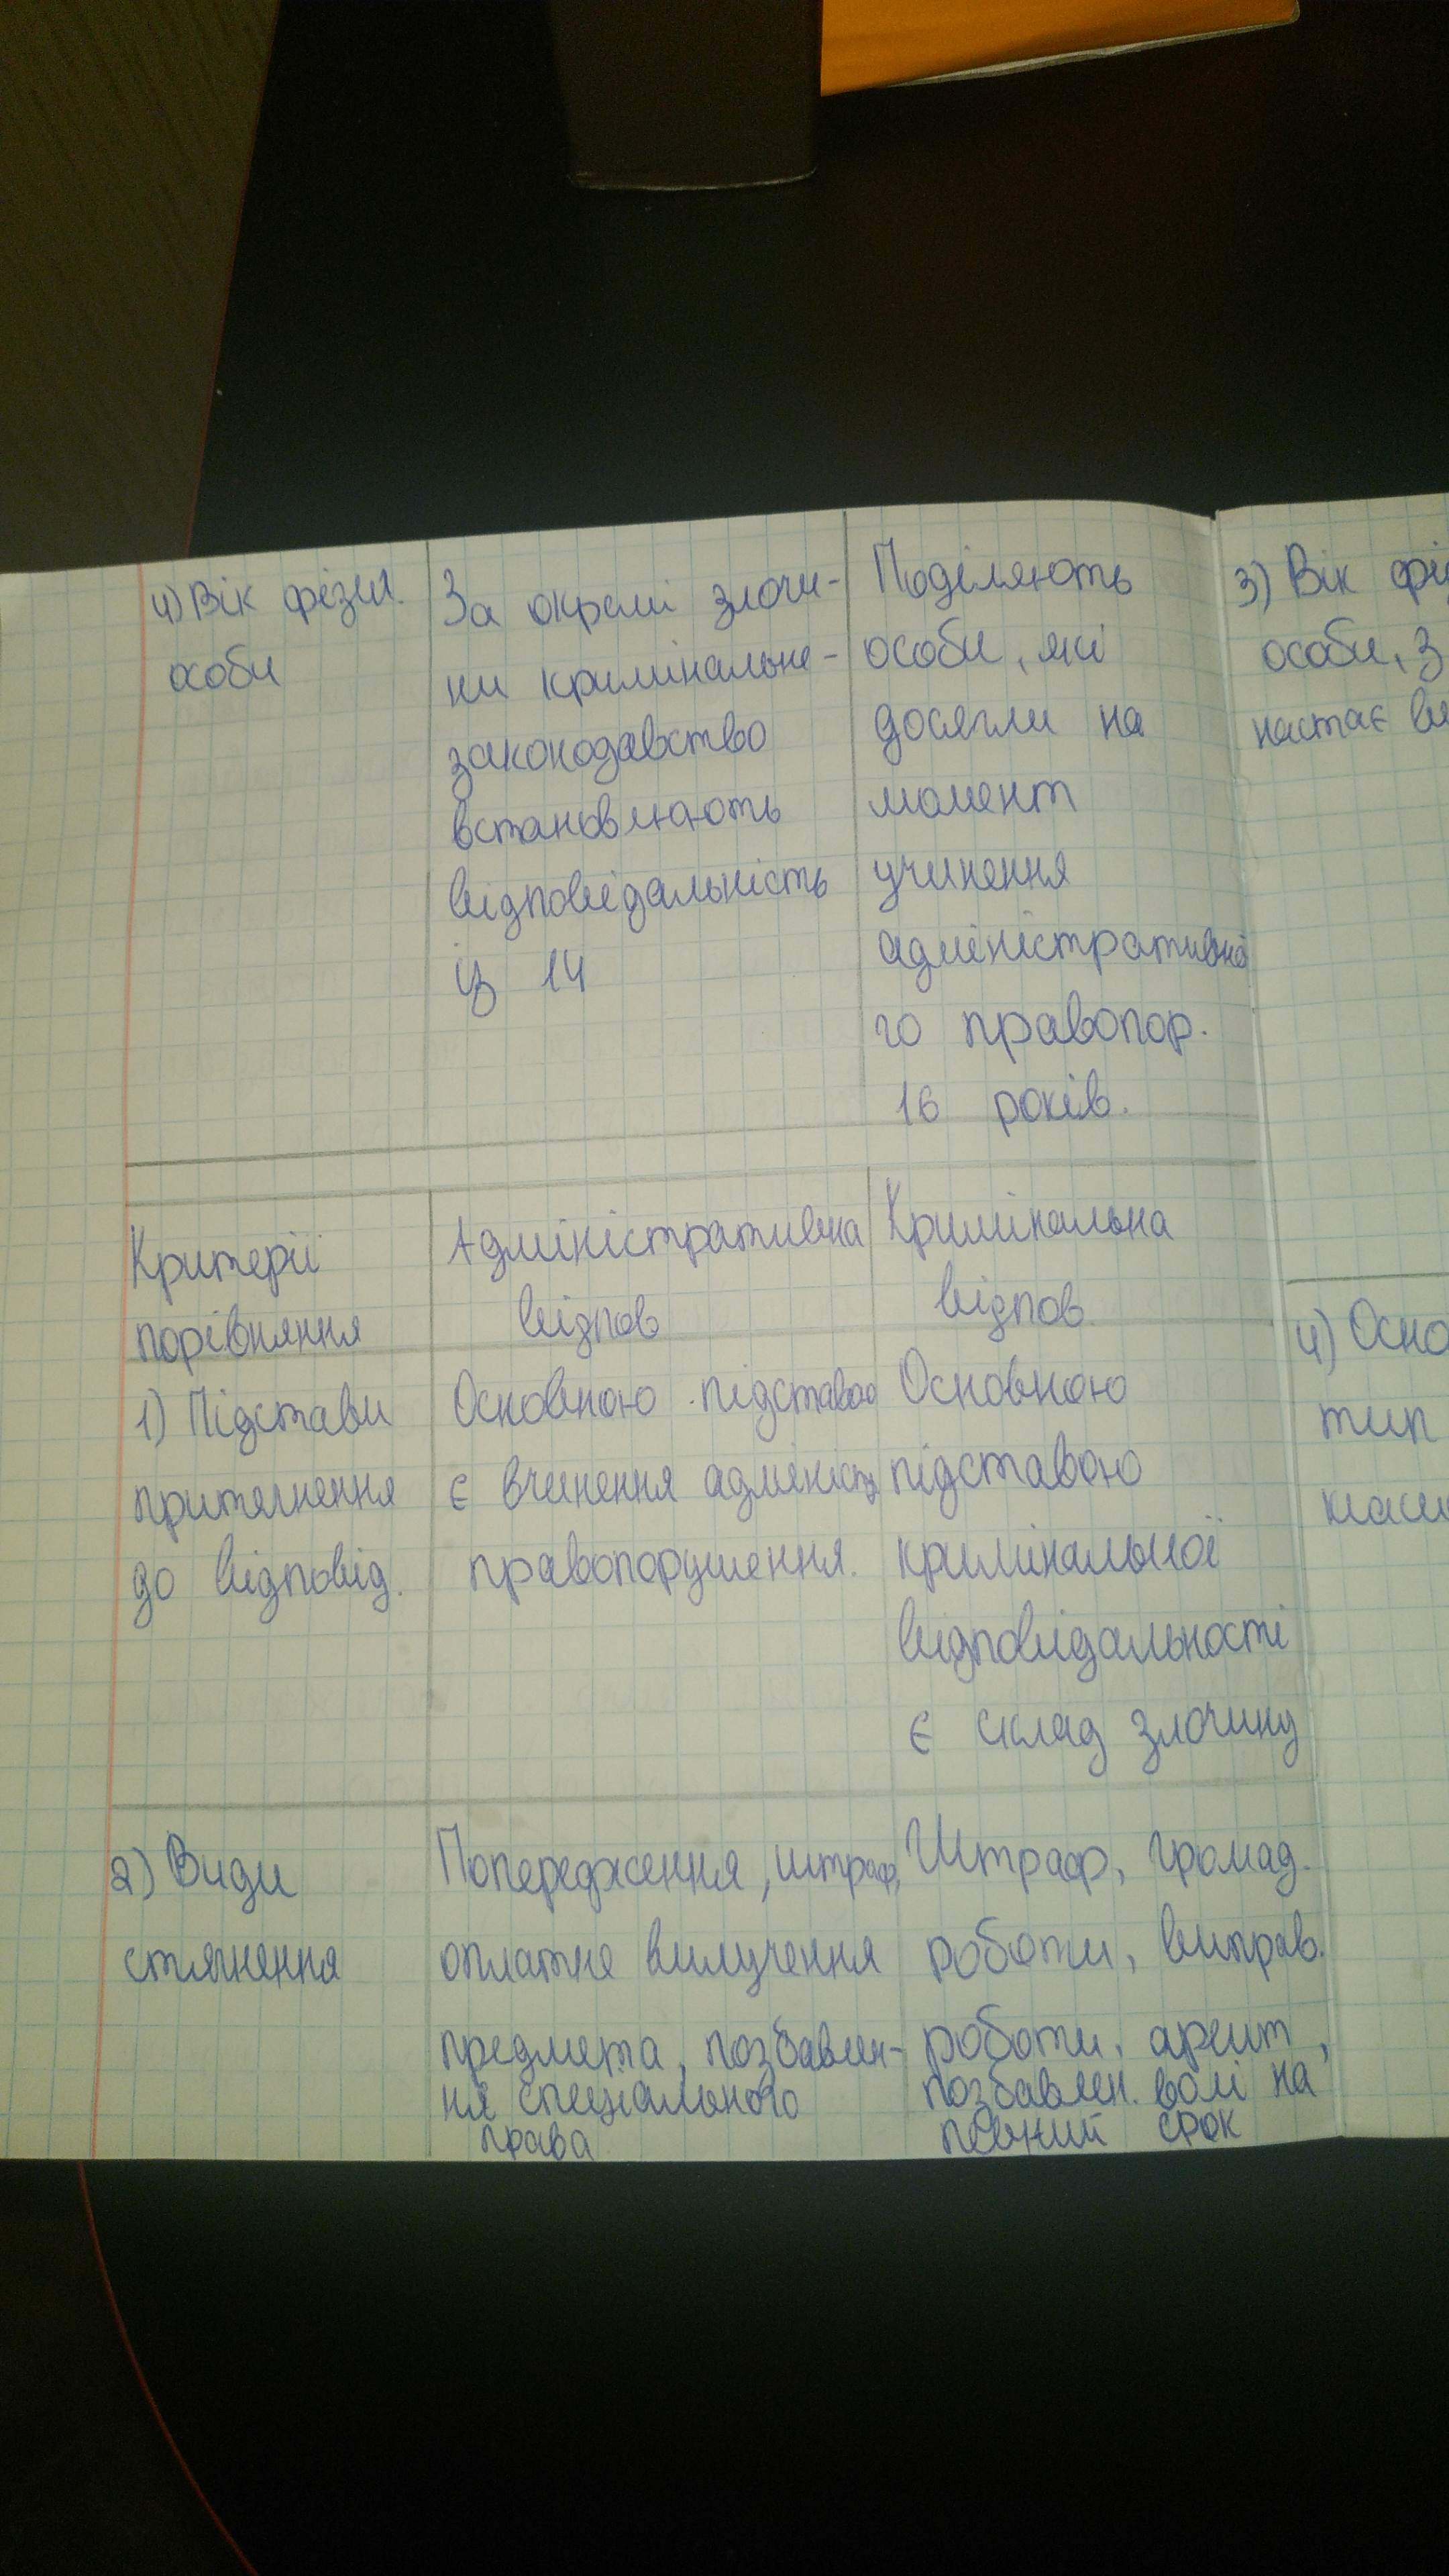 4) Вік фізич.
особи
За окремі злочи-
ни кримінальне-
законодавство
встановлюють
відповідальність
із 14
Поділяють
особи, які
досягли на
момент
учинення
адміністративно
го правопор.
16 років.
Критерії
порівняння
Адміністративна
відпов
Кримінальна
відпов
1) Підстави
притягнення
до відповід.
Основною підставою
є вчинення адмініст
правопорушення.
Основною
підставою
кримінальної
відповідальності
є склад злочину
2) Види
стягнення
Попередження, штраф,
оплатне вилучення
предмета, позбавлен-
ня спеціального
права
Штраф, громад.
роботи, виправ.
роботи, арешт,
позбавлен. волі на
певний срок
3) Вік фі
особи, з
настає ві
4) Осно
тип